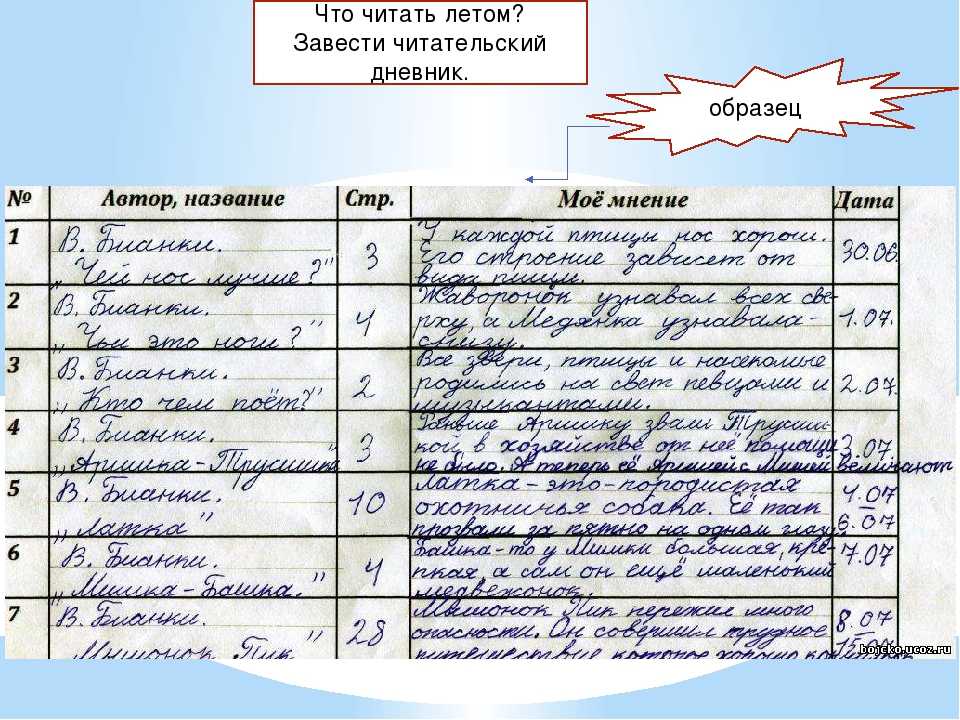 Что читать летом?
Завести читательский
дневник.
образец
№ Автор, название Стр. Моё мнение Дата
1 В. Бианки. „Чей нос лучше?" 3 У каждой птицы нос хорош.
Его строение зависит от
вида пищи. 30.06.
2 В. Бианки. „Чьи это ноги?" 4 Жаворонок узнавал всех све-
рху, а Медянка узнавала-
снизу. 1.07.
3 В. Бианки. „Кто чем поёт?" 2 Все звери, птицы и насекомые
родились на свет певцами и
музыкантами. 2.07.
4 В. Бианки. „Аришка-Трусишка" 3 Раньше Аришку звали Трусиш-
кой в хозяйстве от неё помощи
не было. А теперь её Аришей с Мишей величают 3.07.
5 В. Бианки. „Латка" 10 Латка-это-породистая
охотничья собака. Её так
прозвали за пятно на одном глазу. 4.07
6.07
6 В. Бианки. „Мишка-Башка." 4 Башка-то у Мишки большая, кре-
пкая, а сам он ещё маленький
медвежонок. 7.07
7 В. Бианки. Мышонок Пик 28 Мышонок Пик пережил много
опасности. Он совершил трудное
путешествие которое хорошо 8.07
bojcko.ucoz.ru